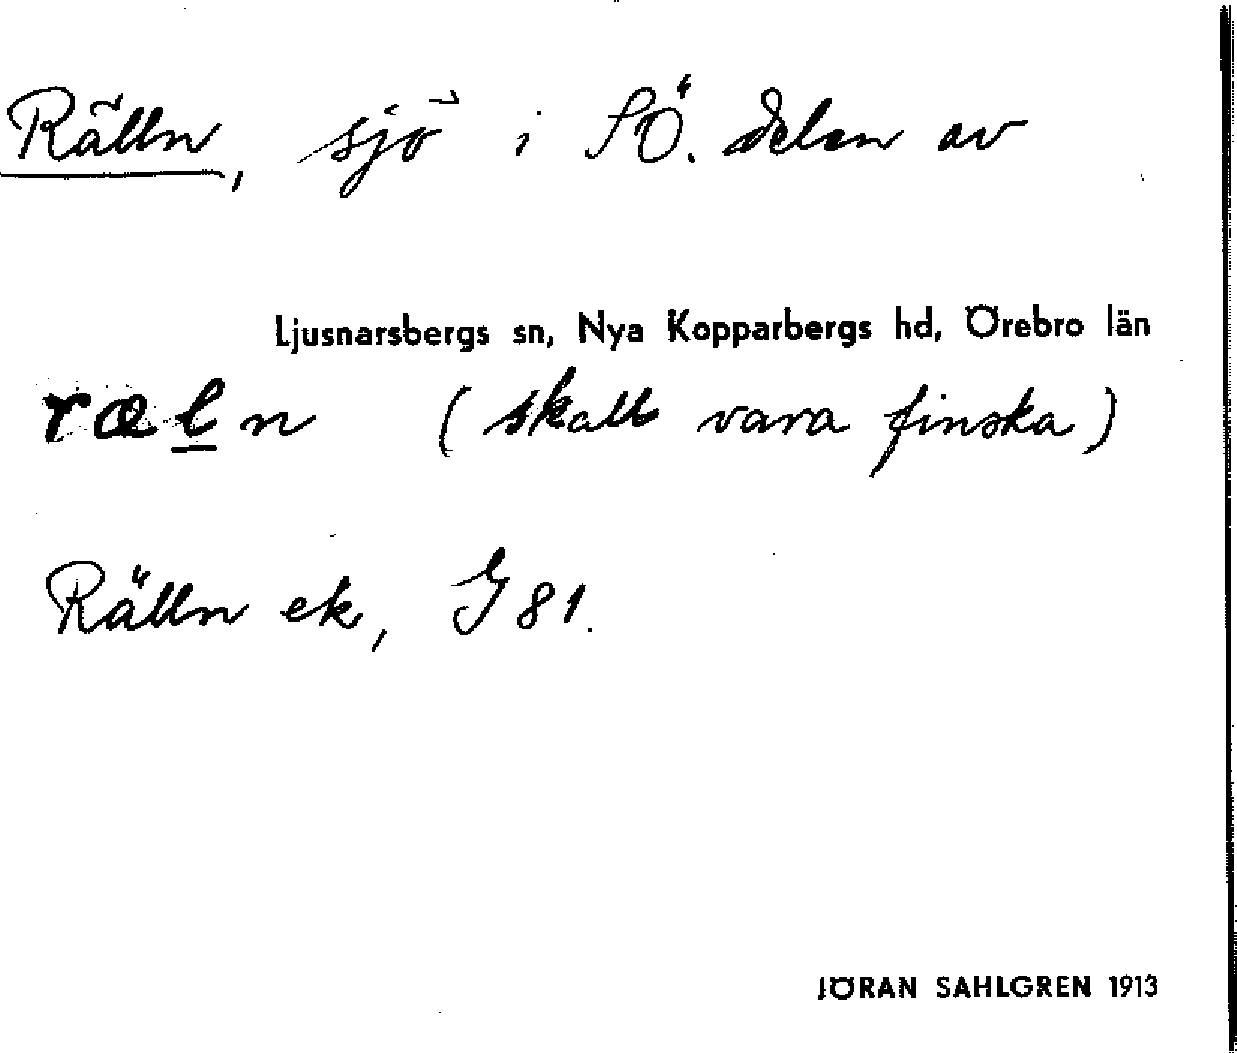 Rälln, sjö i SÖ. delen av
Ljusnarsbergs sn, Nya Kopparbergs hd, Örebro län
ræl̲n (skall vara finska)
Rälln ek, G 81.
JÖRAN SAHLGREN 1913